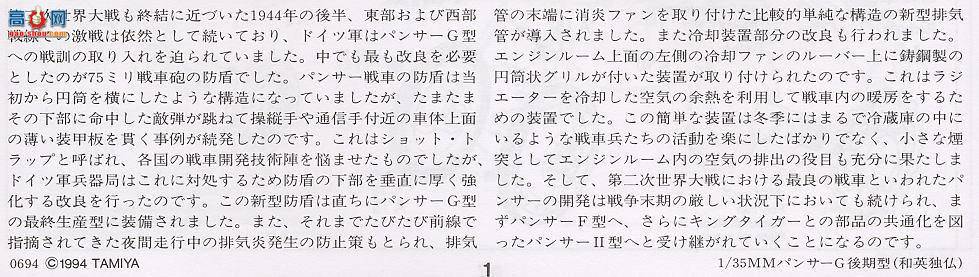 次世界大戦も終結に近づいた1944年の後半、東部および西部
戦線での激戦は依然として続いており、ドイツ軍はパンサーG型
への戦訓の取り入れを迫られていました。中でも最も改良を必要
としたのが75ミリ戦車砲の防盾でした。パンサー戦車の防盾は当
初から円筒を横にしたような構造になっていましたが、たまたま
その下部に命中した敵弾が跳ねて操縦手や通信手付近の車体上面
の薄い装甲板を貫く事例が続発したのです。これはショット・ト
ラップと呼ばれ、各国の戦車開発技術陣を悩ませたものでしたが、
ドイツ軍兵器局はこれに対処するため防盾の下部を垂直に厚く強
化する改良を行ったのです。この新型防盾は直ちにパンサーG型
の最終生産型に装備されました。また、それまでたびたび前線で
指摘されてきた夜間走行中の排気炎発生の防止策もとられ、排気
管の末端に消炎ファンを取り付けた比較的単純な構造の新型排気
管が導入されました。また冷却装置部分の改良も行われました。
エンジンルーム上面の左側の冷却ファンのルーバー上に鋳鋼製の
円筒状グリルが付いた装置が取り付けられたのです。これはラジ
エーターを冷却した空気の余熱を利用して戦車内の暖房をするた
めの装置でした。この簡単な装置は冬季にはまるで冷蔵庫の中に
いるような戦車兵たちの活動を楽にしたばかりでなく、小さな煙
突としてエンジンルーム内の空気の排出の役目も充分に果たしま
した。そして、第二次世界大戦における最良の戦車といわれたパ
ンサーの開発は戦争末期の厳しい状況下においても続けられ、ま
ずパンサーF型へ、さらにキングタイガーとの部品の共通化を図
ったパンサーII型へと受け継がれていくことになるのです。
0694 ©1994 TAMIYA
1
1/35MMパンサーG後期型(和英独仏)